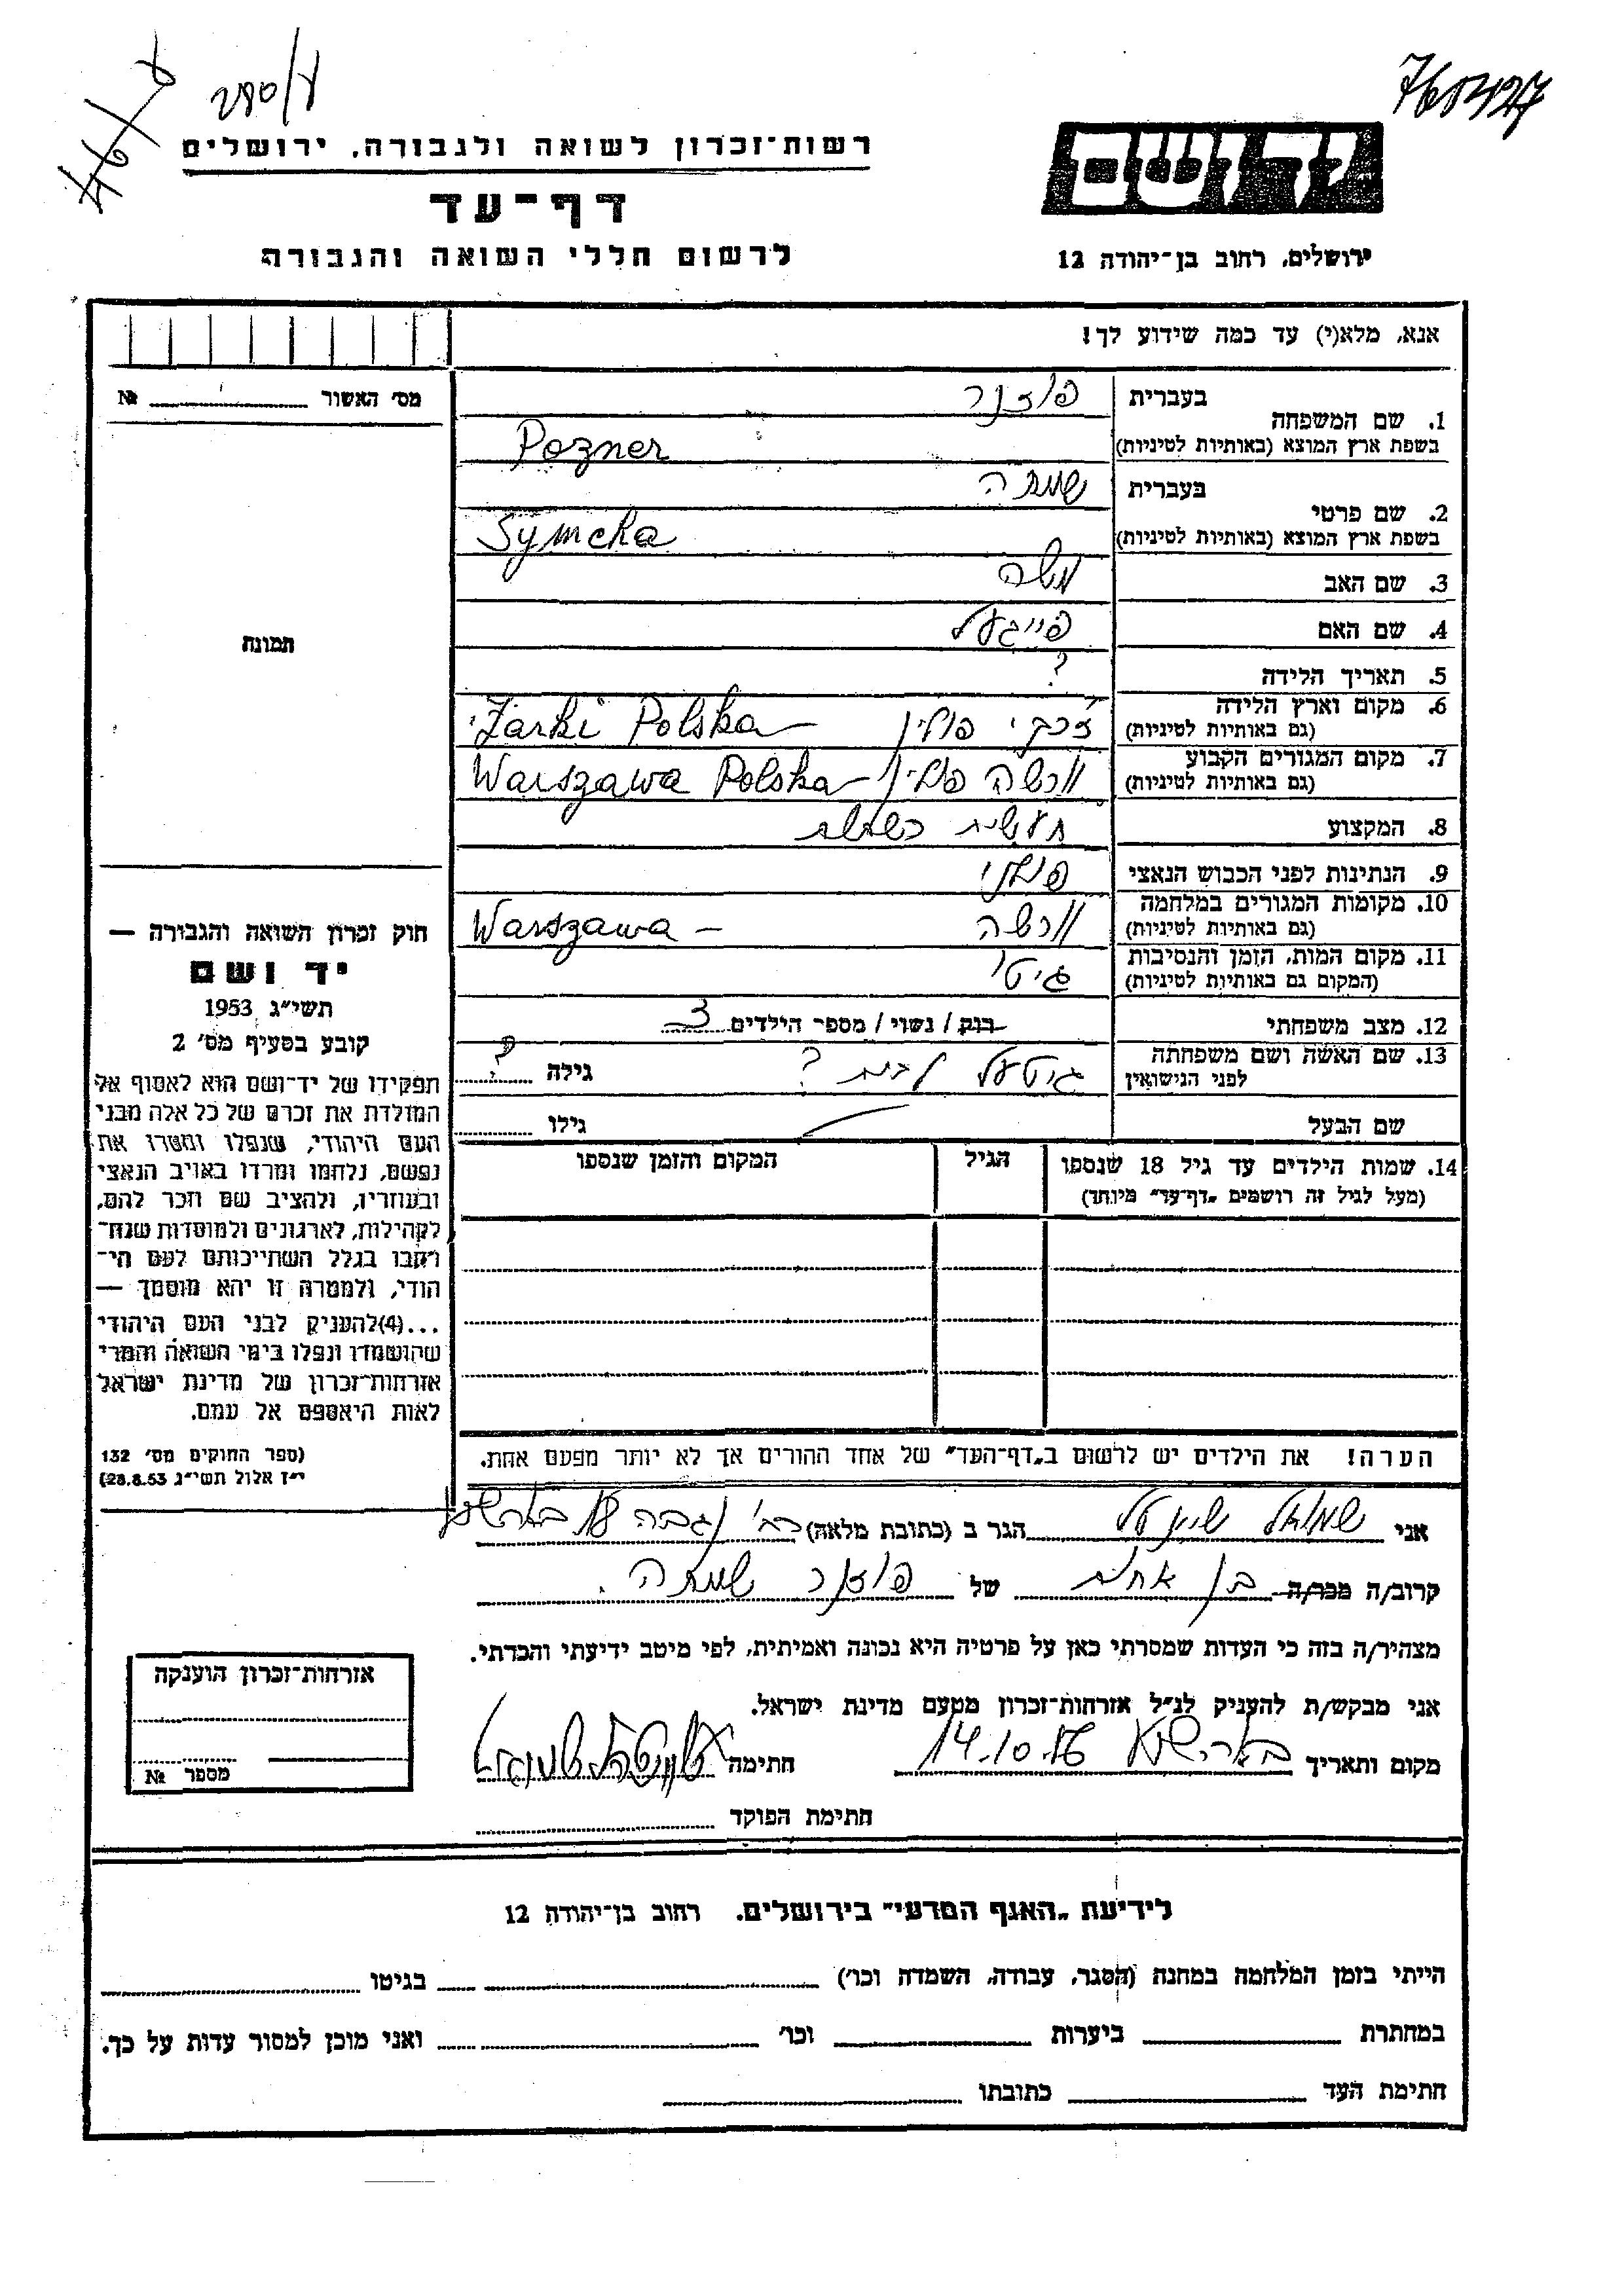 רשות־זכרון לשואה ולגבורה, ירושלים
דף־עד
לרשום חללי השואה והגבורה
יד ושם
ירושלים, רחוב בן־יהודה 12
אנא, מלא(י) עד כמה שידוע לך!
מס׳ האשור № 
תמונה
1. שם המשפחה
בעברית פוזנר
בשפת ארץ המוצא (באותיות לטיניות) Pozner
2. שם פרטי
בעברית שמחה
בשפת ארץ המוצא (באותיות לטיניות) Symcha
3. שם האב משה
4. שם האם פייגעל
5. תאריך הלידה ?
6. מקום וארץ הלידה ז'רקי פולין Żarki Polska
(גם באותיות לטיניות)
7. מקום המגורים הקבוע וורשה פולין – Warszawa Polska
(גם באותיות לטיניות)
8. המקצוע
9. הנתינות לפני הכבוש הנאצי פולני
10. מקומות המגורים במלחמה וורשה Warszawa –
(גם באותיות לטיניות)
11. מקום המות, הזמן והנסיבות גיטו
(המקום גם באותיות לטיניות)
12. מצב משפחתי רווק / נשוי / מספר הילדים 3
13. שם האשה ושם משפחתה גיטעל לבית ? גילה ?
לפני הנישואין
שם הבעל גילו
14. שמות הילדים עד גיל 18 שנספו הגיל המקום והזמן שנספו
(מעל לגיל זה רושמים „דף־עד" מיוחד)
הערה! את הילדים יש לרשום ב„דף־העד" של אחד ההורים אך לא יותר מפעם אחת.
חוק זכרון השואה והגבורה —
יד ושם
תשי"ג 1953
קובע בסעיף מס׳ 2
תפקידו של יד־ושם הוא לאסוף אל
המולדת את זכרם של כל אלה מבני
העם היהודי, שנפלו ומסרו את
נפשם, נלחמו ומרדו באויב הנאצי
ובעוזריו, ולהציב שם וזכר להם,
לקהילות, לארגונים ולמוסדות שנח־
רבו בגלל השתייכותם לעם הי־
הודי, ולמטרה זו יהא מוסמך —
...(4) להעניק לבני העם היהודי
שהושמדו ונפלו בימי השואה והמרי
אזרחות־זכרון של מדינת ישראל
לאות היאספם אל עמם.
(ספר החוקים מס׳ 132
י"ז אלול תשי"ג 28.8.53)
אני שמואל הגר ב (כתובת מלאה) רח' באר שבע
קרוב/ה מכר/ה בן אחות של פוזנר שמחה.
מצהיר/ה בזה כי העדות שמסרתי כאן על פרטיה היא נכונה ואמיתית, לפי מיטב ידיעתי והכרתי.
אני מבקש/ת להעניק לנ"ל אזרחות־זכרון מטעם מדינת ישראל.
מקום ותאריך באר שבע 14.10. חתימה
חתימת הפוקד
אזרחות־זכרון הוענקה
מספר №
לידיעת „האגף המדעי" בירושלים, רחוב בן־יהודה 12
הייתי בזמן המלחמה במחנה (הסגר, עבודה, השמדה וכו׳) בגיטו
במחתרת ביערות וכו׳ ואני מוכן למסור עדות על כך.
חתימת העד כתובתו